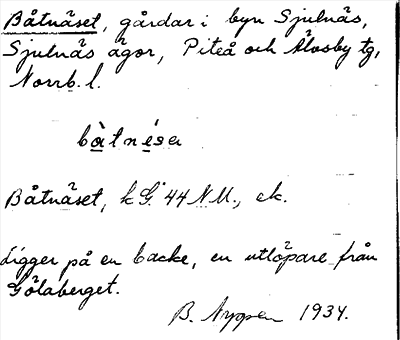 Båtnäset, gårdar i byn Sjulnäs,
Sjulnäs ägor, Piteå och Älvsby tg,
Norrb. l.
bàtnésa
Båtnäset, kG. 44 NU., ek.
Ligger på en backe, en utlöpare från
Gölaberget.
B. Nyppen 1934.